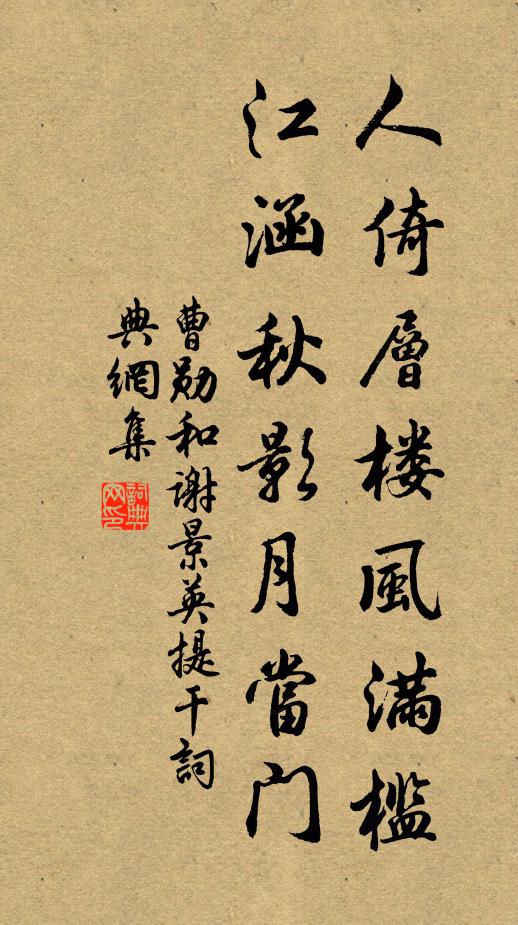 人倚層楼風滿檻
江涵秋影月當门
曹勋和谢景英提干詞
典網集
詞典网印